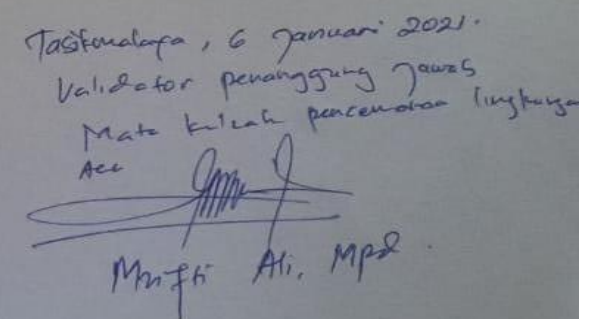 Tasikmalaya, 6 Januari 2021.
Validator penanggung Jawab
Mata kuliah pencemaran lingkungan
Acc
Mufti Ali, Mpd.